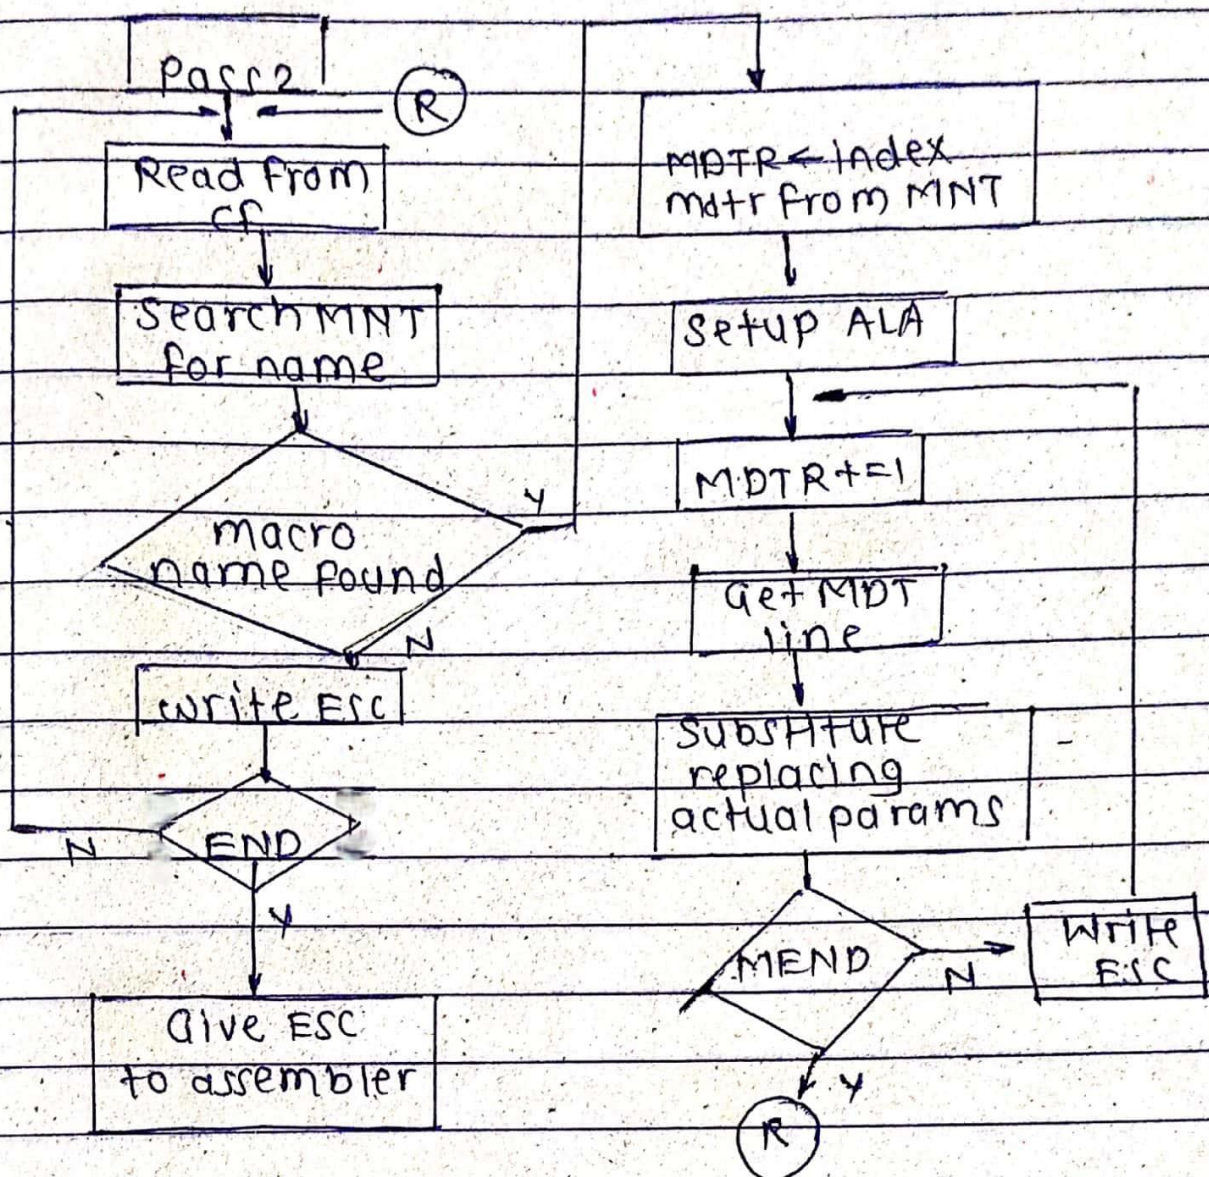 Pass2
R
Read from
cf
Search MNT
for name
macro
name found
Y
N
write ESC
END
N
Y
Give ESC
to assembler
MDTR ← index
mdtr from MNT
Setup ALA
MDTR+=1
Get MDT
line
Substitute
replacing
actual params
MEND
N
Write
ESC
Y
R